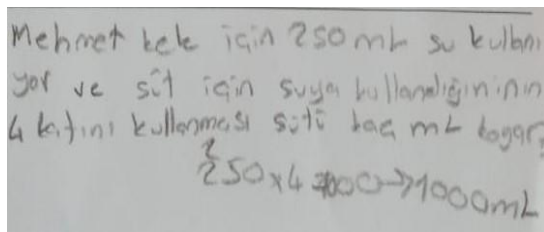 Mehmet kek için 250 mL su kullanı
yor ve süt için suya kullandığınının
4 katını kullanması sütü kaç mL koyar?
2
250x4 = 1000 → 1000mL